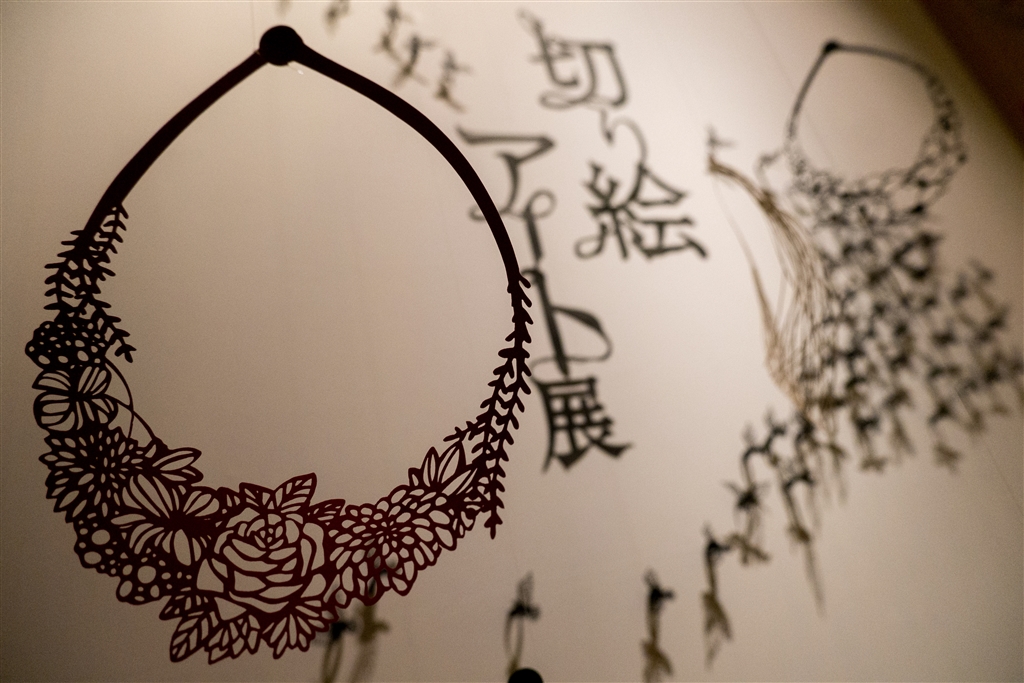 切り絵
アート展